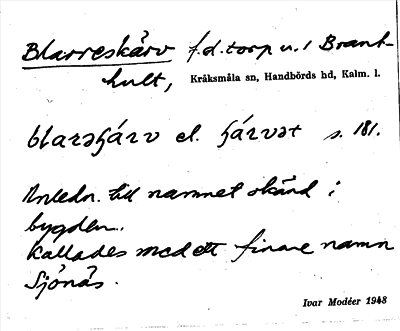 Blarreskärv f.d. torp u. / Brant-
hult, Kråksmåla sn, Handbörds hd, Kalm. l.
blarəʃärv el. ʃärvət s. 181.
Anledn. till namnet okänd i
bygden.
Kallades med ett finare namn
Sjönäs.
Ivar Modéer 1948